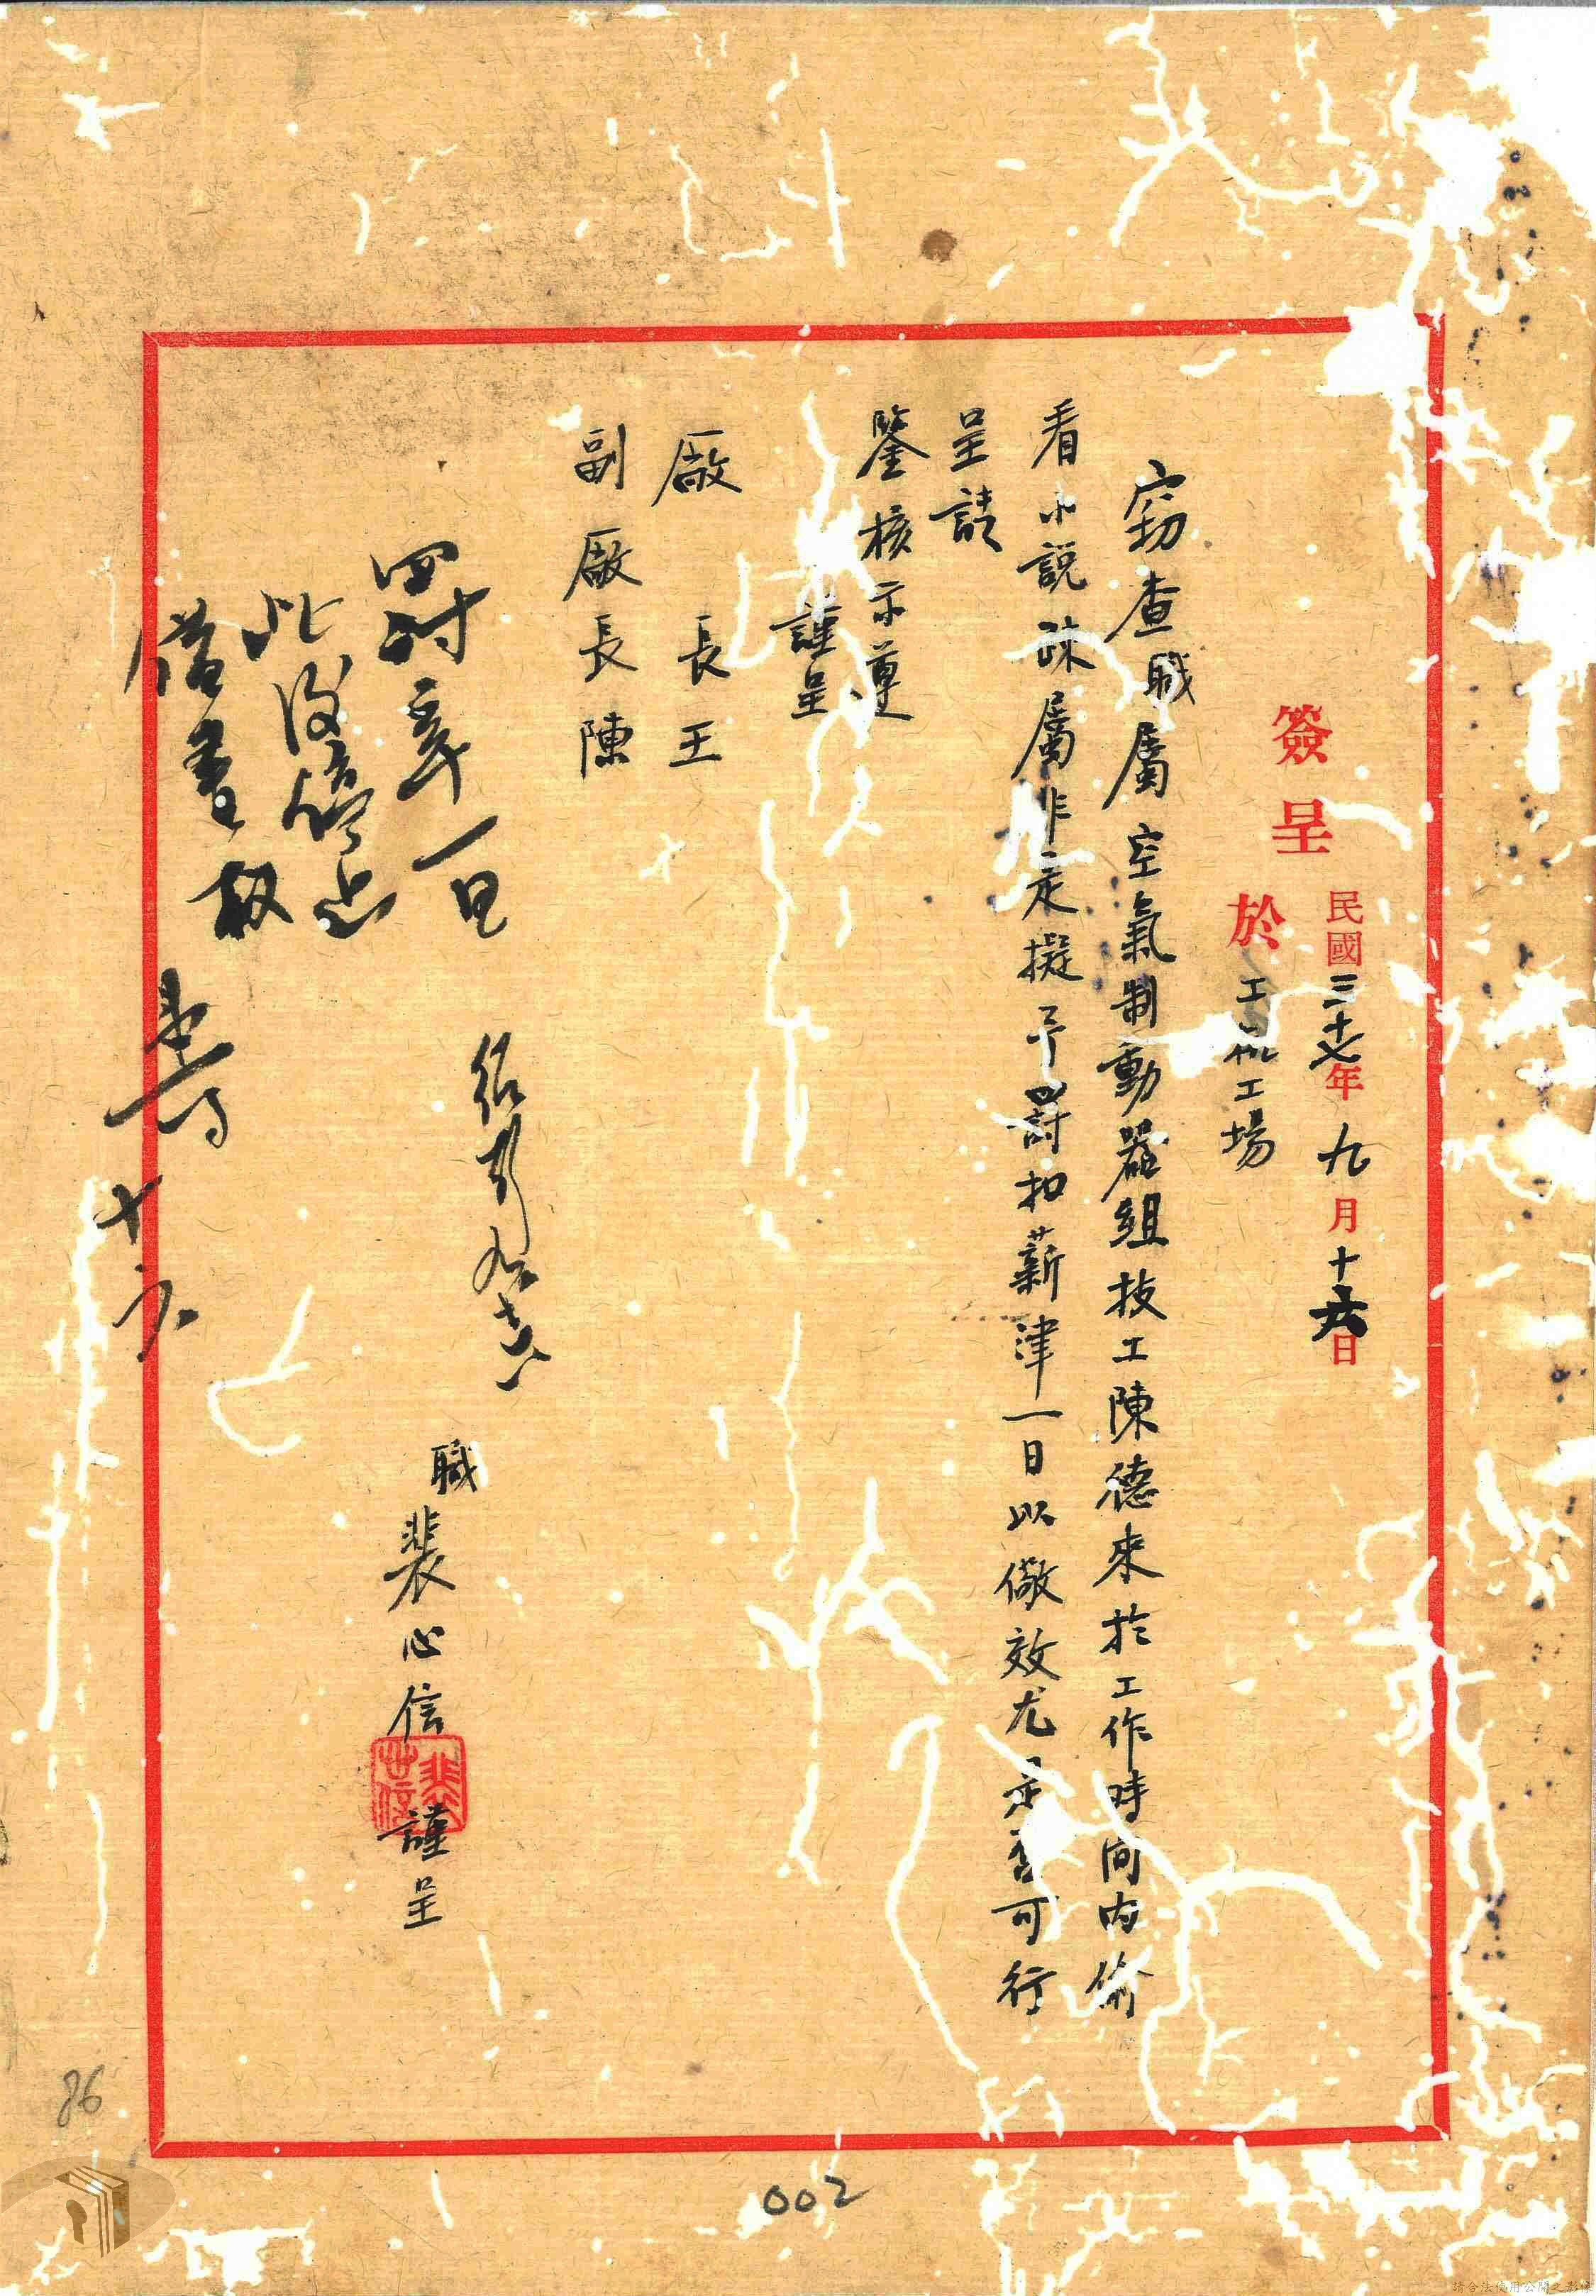 簽呈
民國三十七年九月十六日
於工機工場
竊查職屬空氣制動器組技工陳德來於工作時间內偷
看小說疎屬非是擬予罰扣薪津一日以儆效尤是否可行
呈請
鑒核示遵
謹呈
廠長王
副廠長陳
罰薪一日
此後停止
借書权
十六
職裴心信謹呈
86
002